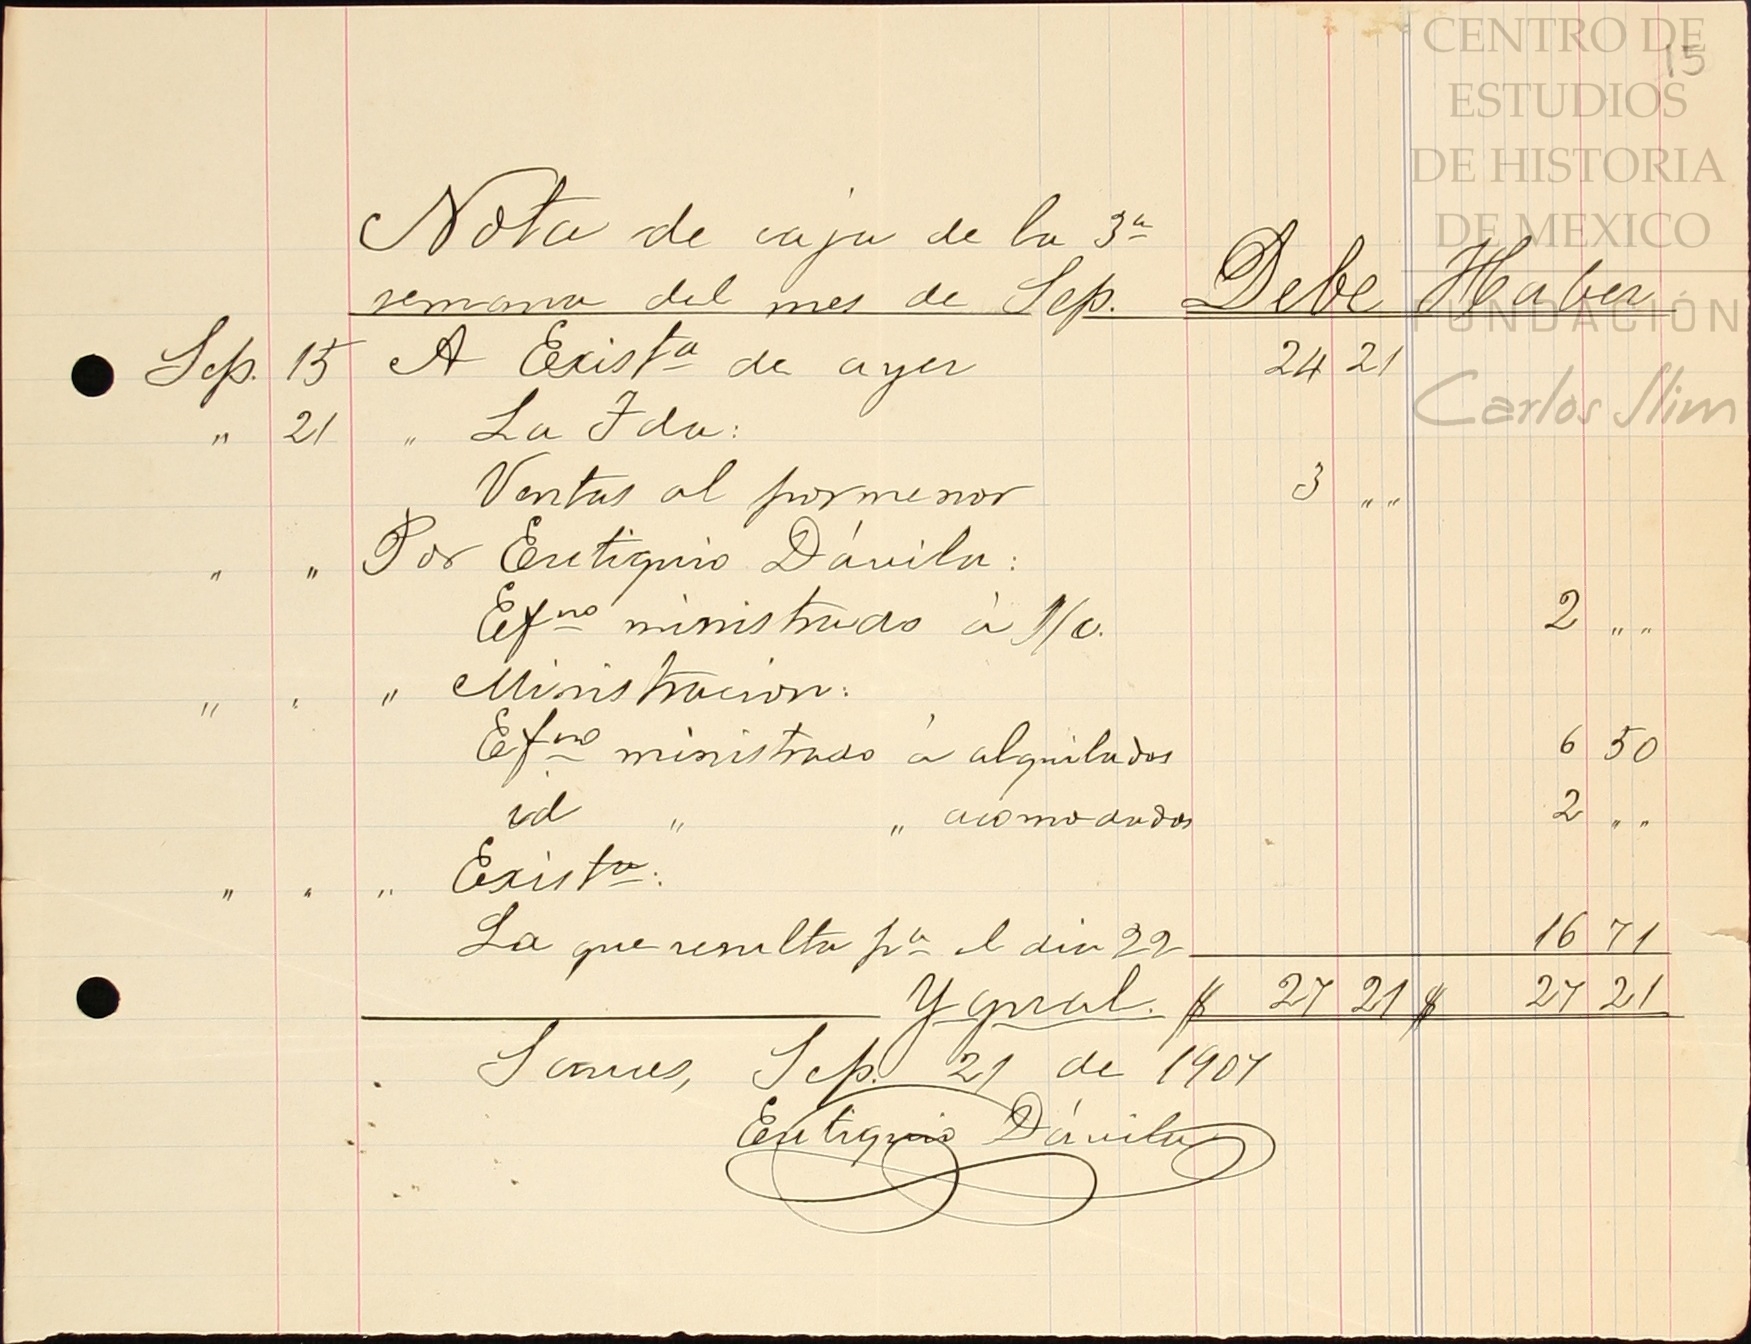 CENTRO DE
ESTUDIOS
DE HISTORIA
DE MEXICO
FUNDACIÓN
Carlos Slim
15
Nota de caja de la 3ª
semana del mes de Sep. Debe Haber
Sep. 15 A Existª de ayer 24 21
" 21 " La Fda:
Ventas al pormenor 3 " "
" " Por Eutiquio Dávila:
Efvo ministrado á s/c. 2 " "
" " " Ministracion:
Efvo ministrado á alquilados 6 50
id " " acomodados 2 " "
" " " Existª:
La que resulta pª el dia 22 16 71
Ygual. $ 27 21 $ 27 21
Sep. 21 de 1907
Eutiquio Dávila